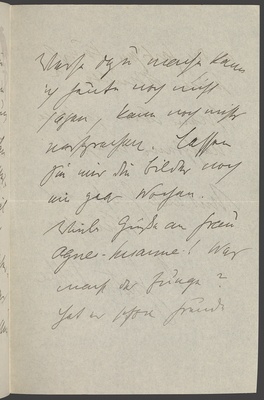 dazu machen kann
ich heute noch nicht
sagen, kann noch nichts
versprechen. Lassen
Sie mir die Bilder noch
ein paar Wochen.
Viele Grüße an Frau
Agnes-Marianne! Was
macht der Junge?
Hat er schon Freunde